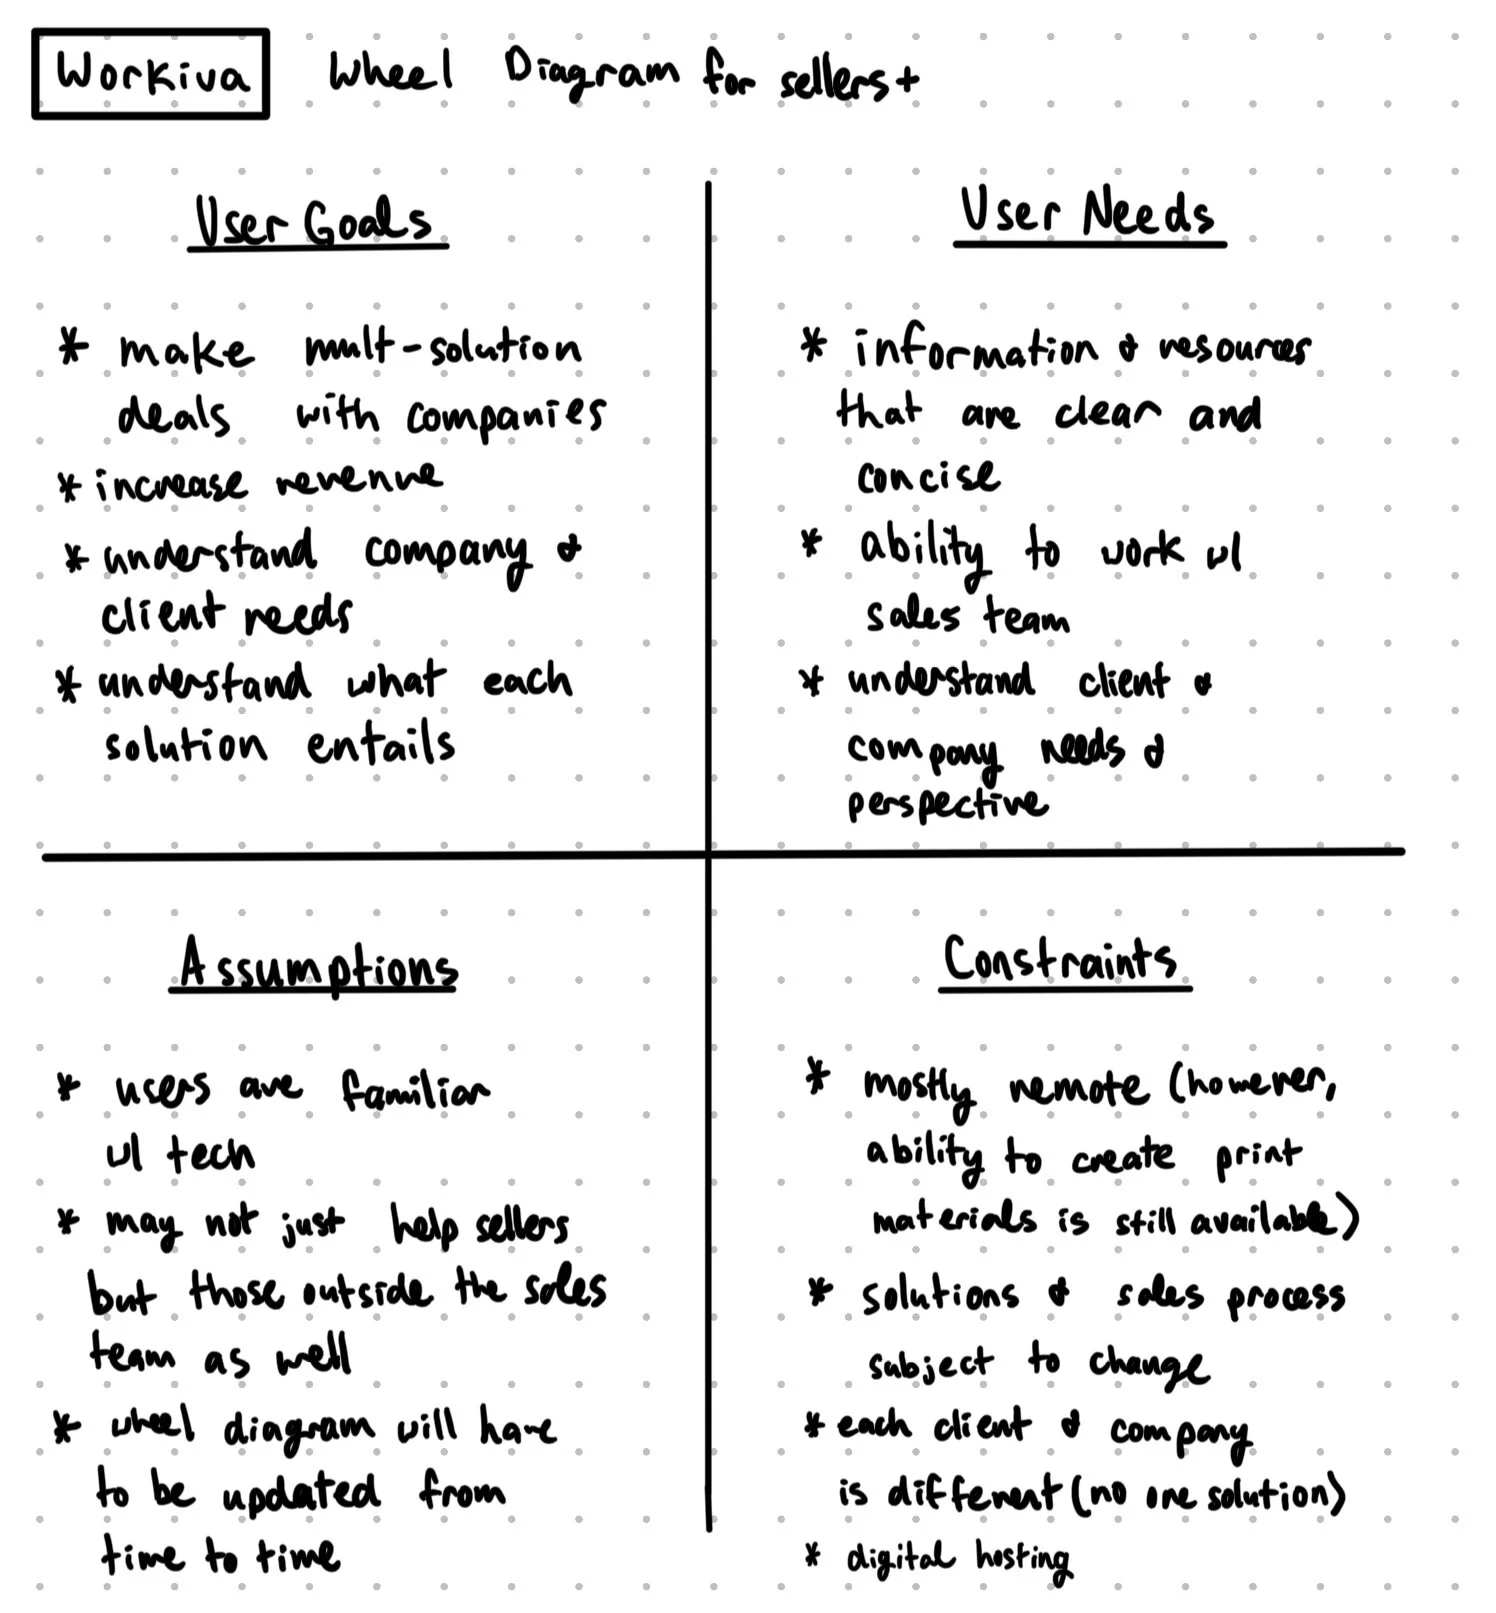 Workiva Wheel Diagram for sellers+
User Goals
* make mult-solution
deals with companies
* increase revenue
* understand company &
client needs
* understand what each
solution entails
User Needs
* information & resources
that are clear and
concise
* ability to work w/
sales team
* understand client &
company needs &
perspective
Assumptions
* users are familiar
w/ tech
* may not just help sellers
but those outside the sales
team as well
* wheel diagram will have
to be updated from
time to time
Constraints
* mostly remote (however,
ability to create print
materials is still available)
* solutions & sales process
subject to change
* each client & company
is different (no one solution)
* digital hosting